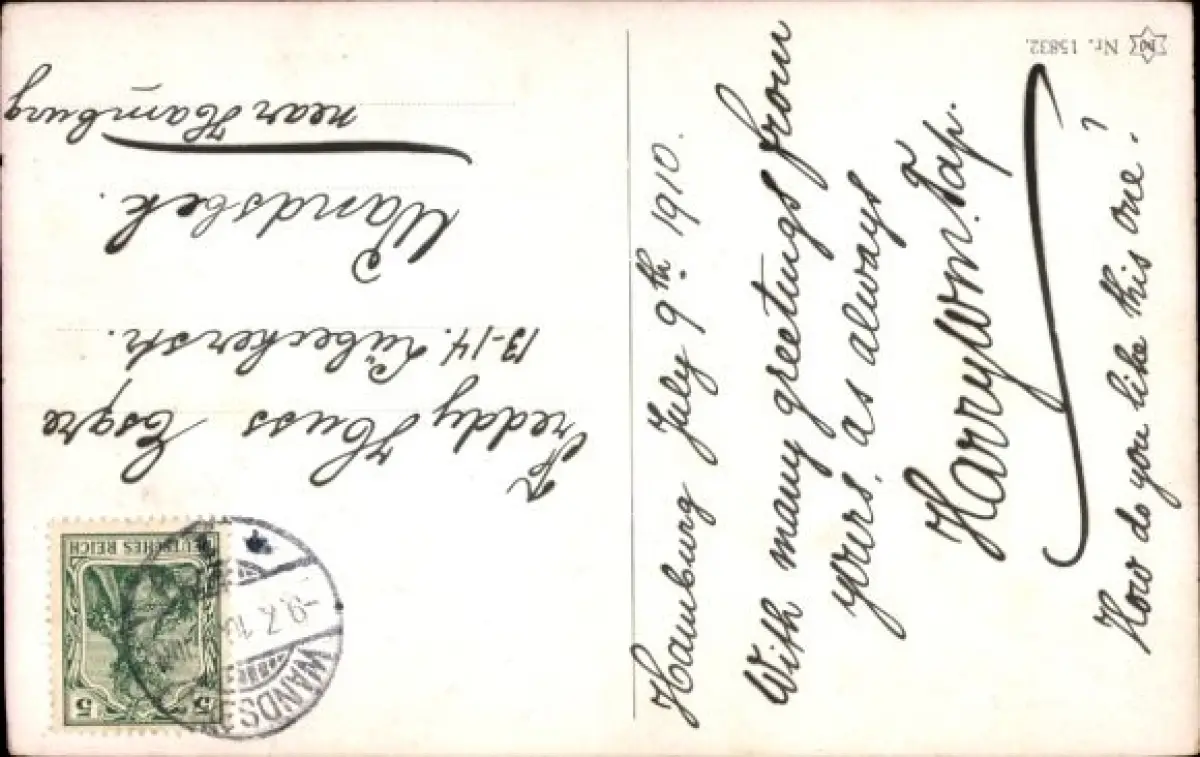 Hamburg July 9th 1910.
With many greetings from
yours, as always
Harry Wm. Tap.
How do you like this one?
Freddy Huss Esqre
13-14. Lübeckerstr.
Wandsbek.
near Hamburg
Nr. 15832.
DEUTSCHES REICH
5 5
WANDSB
-9.7.10